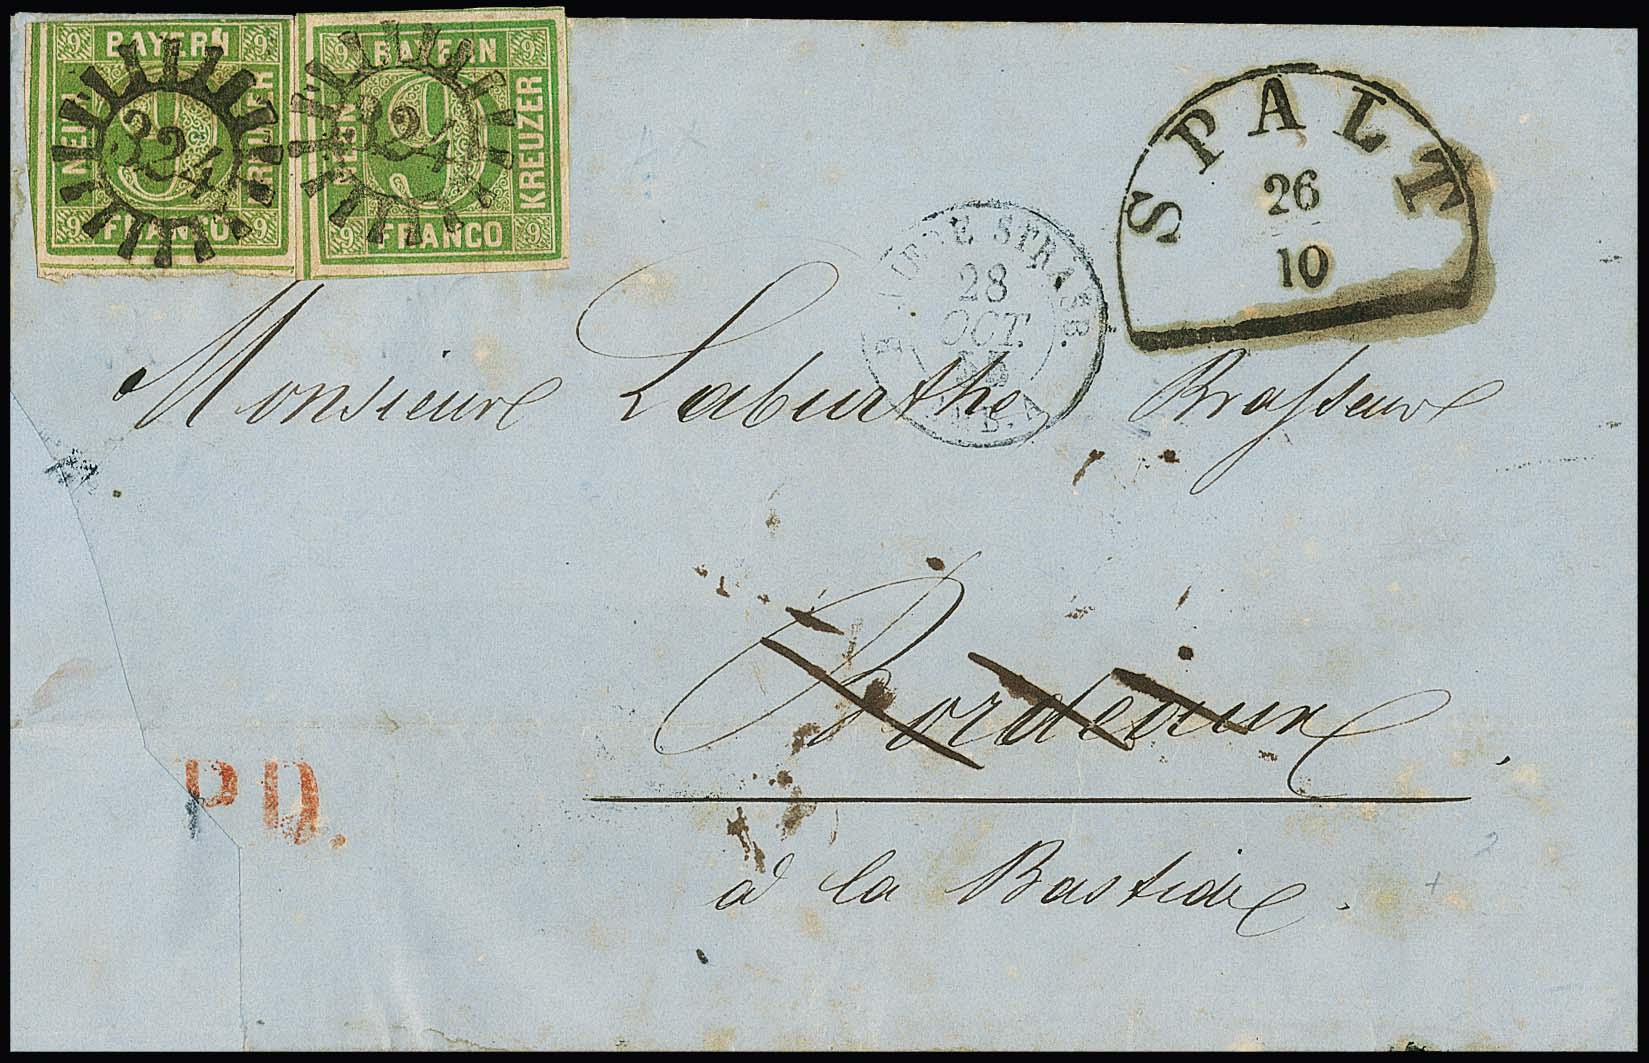 9 BAYERN 9
NEUN
KREUZER
9 FRANCO 9
9
324
9 BAYERN 9
NEUN
KREUZER
9 FRANCO 9
9
324
SPALT
26
10
BAVIERE STRASB.
28
OCT.
AMB. A
Monsieur Laburthe Brasseur
Bordeaux
à la Bastide.
P.D.